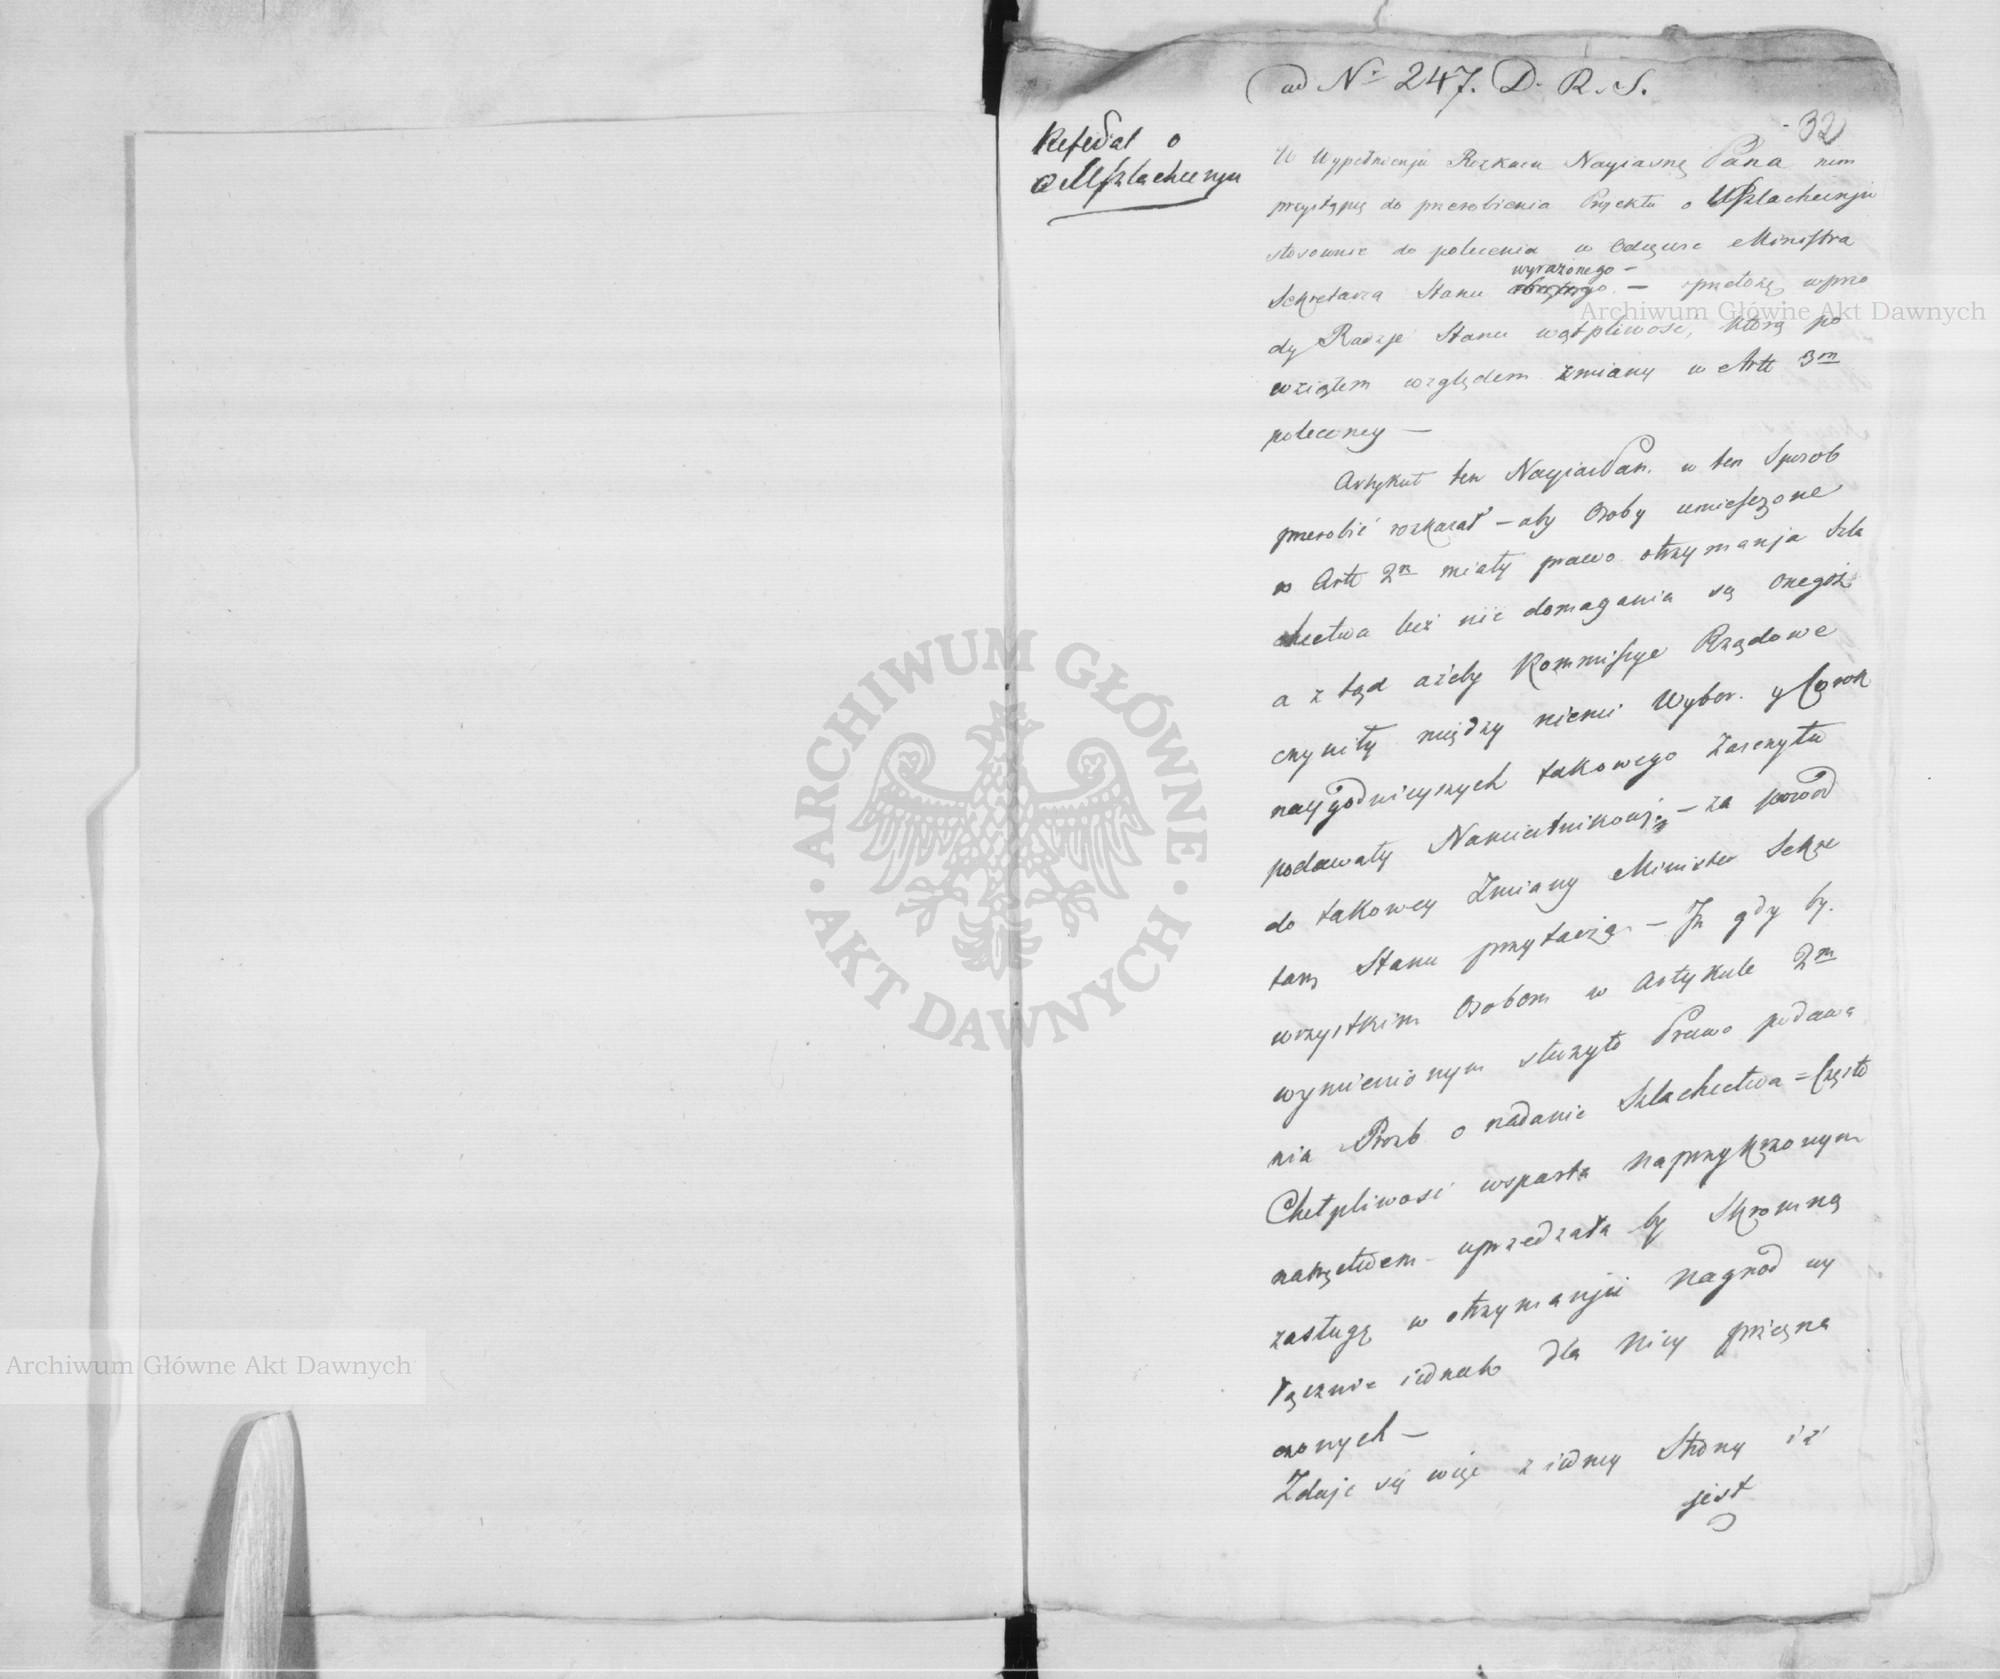 ad No 247. D. R. S.
32
Referat o
Uszlachceniu
W Wypełnieniu Rozkazu Nayiasnę Pana nim
przystąpię do przerobienia Projektu o Uszlacheniu
stosownie do polecenia w Odezwie Ministra
Sekretarza Stanu wyrażonego — przełożę wprzo
dy Radzie Stanu wątpliwość, którą po
wziąłem względem zmiany w Art 3m
poleconey —
Artykuł ten NayiasPan. w ten Sposob
przerobić rozkazał — aby Osoby umieszczone
w Art 2m miały prawo otrzymania Szla
chectwa lecz nie domagania się onegoż
a z tąd ażeby Kommissye Rządowe
czyniły między niemi Wybor. y Corok
naygodnieyszych takowego Zaszczytu
podawały Namiestnikowi — za powod
do takowey Zmiany Minister Sekre
tarz Stanu przytacza — Iż gdy by
wszystkim Osobom w Artykule 2m
wymienionym służyło Prawo podawa
nia Prozb o nadanie Szlachectwa = Często
Chełpliwość wsparta naprzykrzonym
natręctwem uprzedzała by Skromną
zasługę w otrzymaniu nagrod wy
łącznie iednak dla Niey przezna
czonych —
Zdaje się więc z iedney Strony iż
jest
Archiwum Główne Akt Dawnych
ARCHIWUM GŁÓWNE · AKT DAWNYCH ·
Archiwum Główne Akt Dawnych